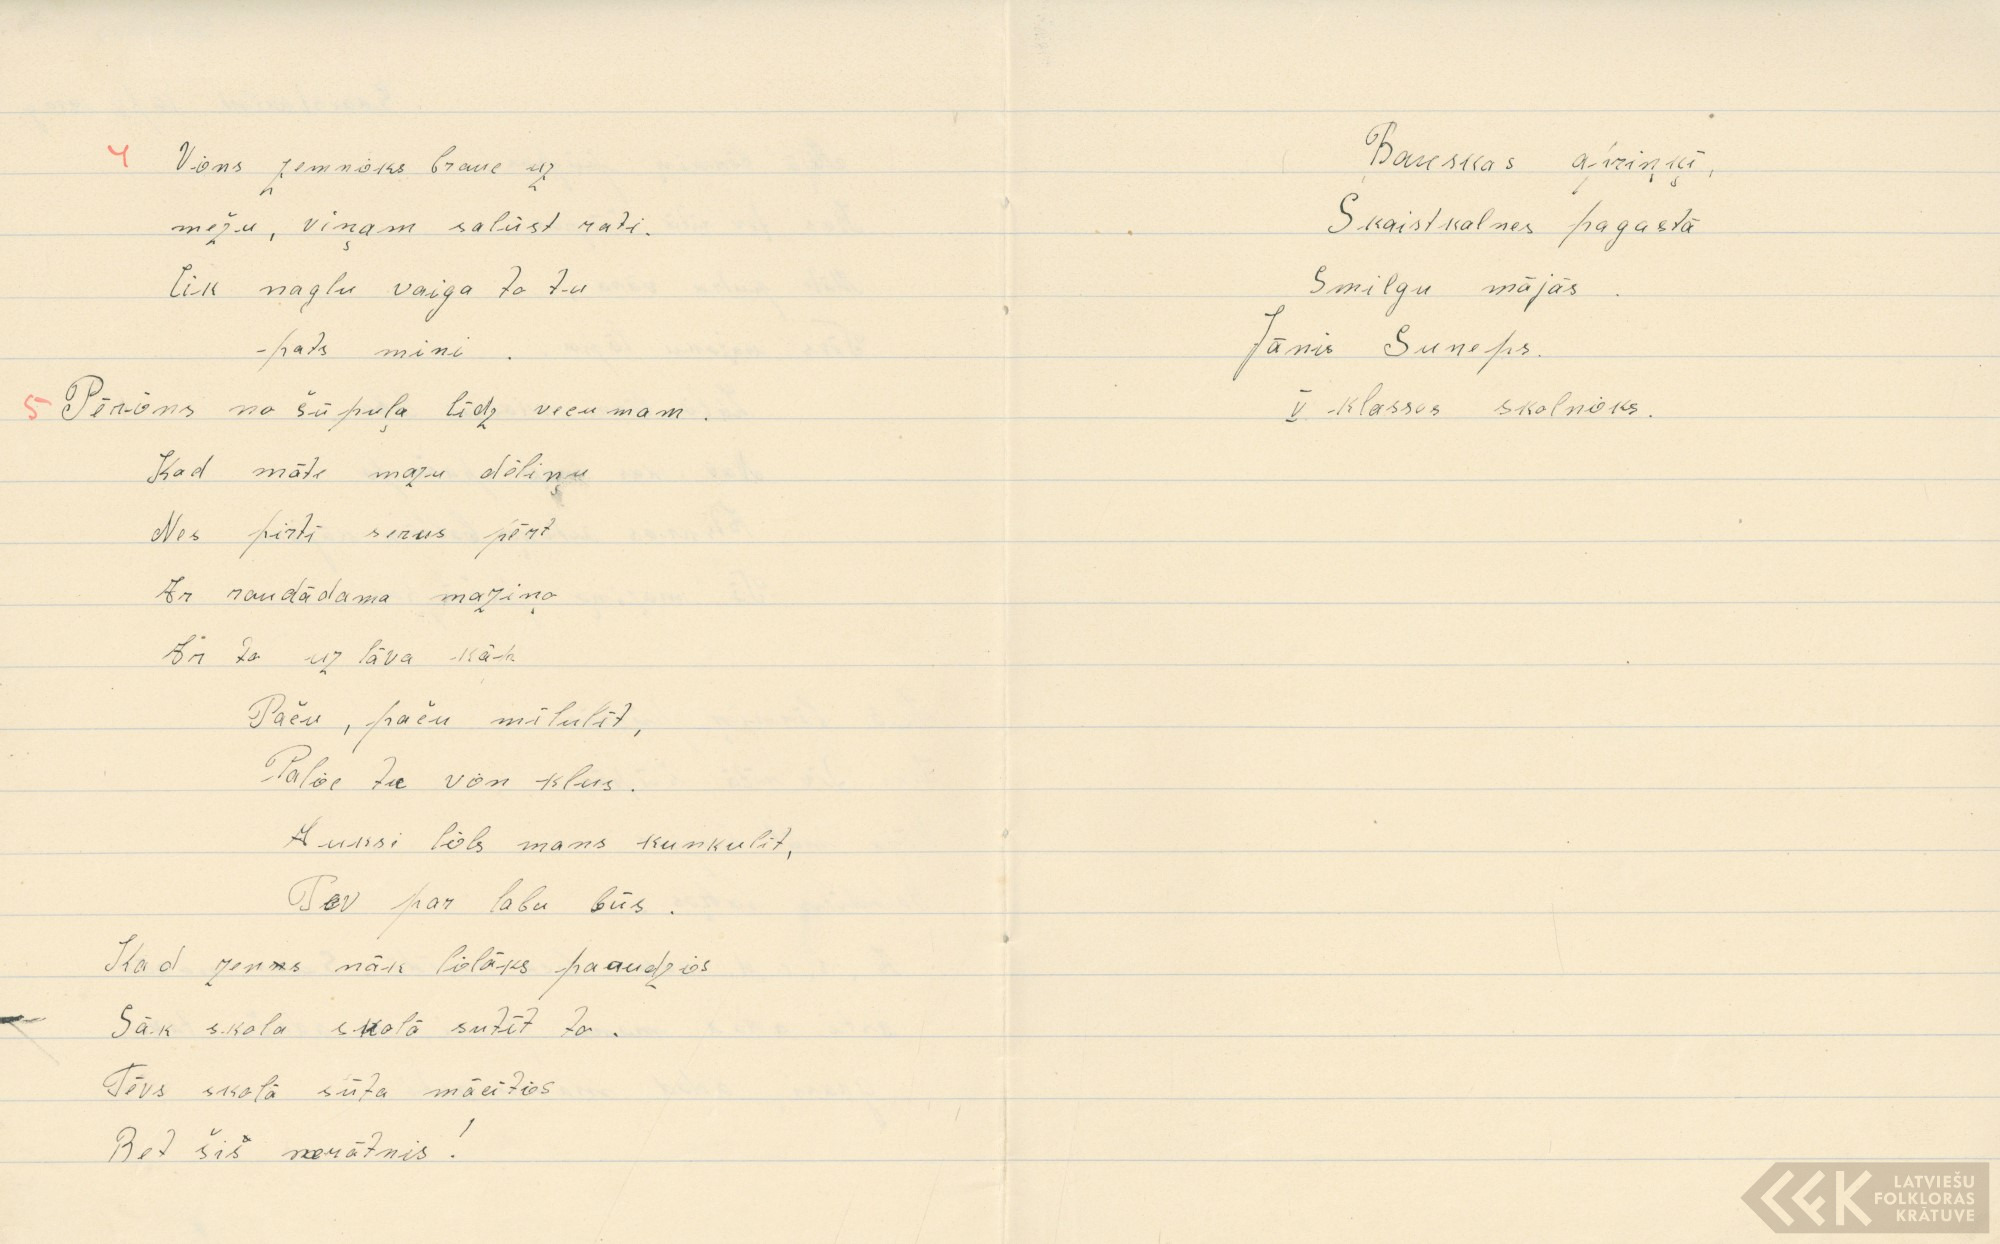 4 Viens zemnieks brauc uz
mežu, viņam salūst rati.
Cik naglu vaiga to tu
pats mini.
5 Pēriens no šūpuļa līdz vecumam.
Kad māte mazu dēliņu
Nes pirtī serus pērt
Ar raudādama maziņo
Ar to uz lāva kāk
Paču, paču mīlulīt,
Paliec tu vien klus.
Auksi liels mans kunkulīt,
Tev par labu būs.
Kad zenns nāk lielāks paaudzies
Sāk skola skolā sutīt to.
Tēvs skolā sūta mācīties
Bet šiš nerātnis!
Bauskas apriņķī,
Skaistkalnes pagastā
Smilgu mājās.
Jānis Suneps.
V klasses skolnieks.
LATVIEŠU
FOLKLORAS
KRĀTUVE